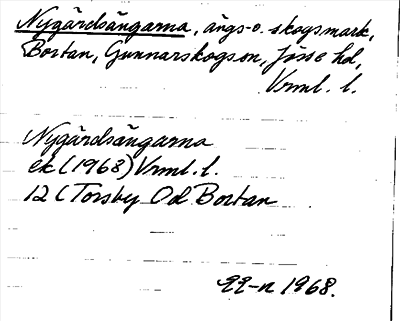 Nygårdsängarna, ängs- o. skogsmark,
Bortan, Gunnarskogs sn, Jösse hd,
Vrml. l.
Nygårdsängarna
ek (1968) Vrml. l.
12 C Torsby Od Bortan
1968.